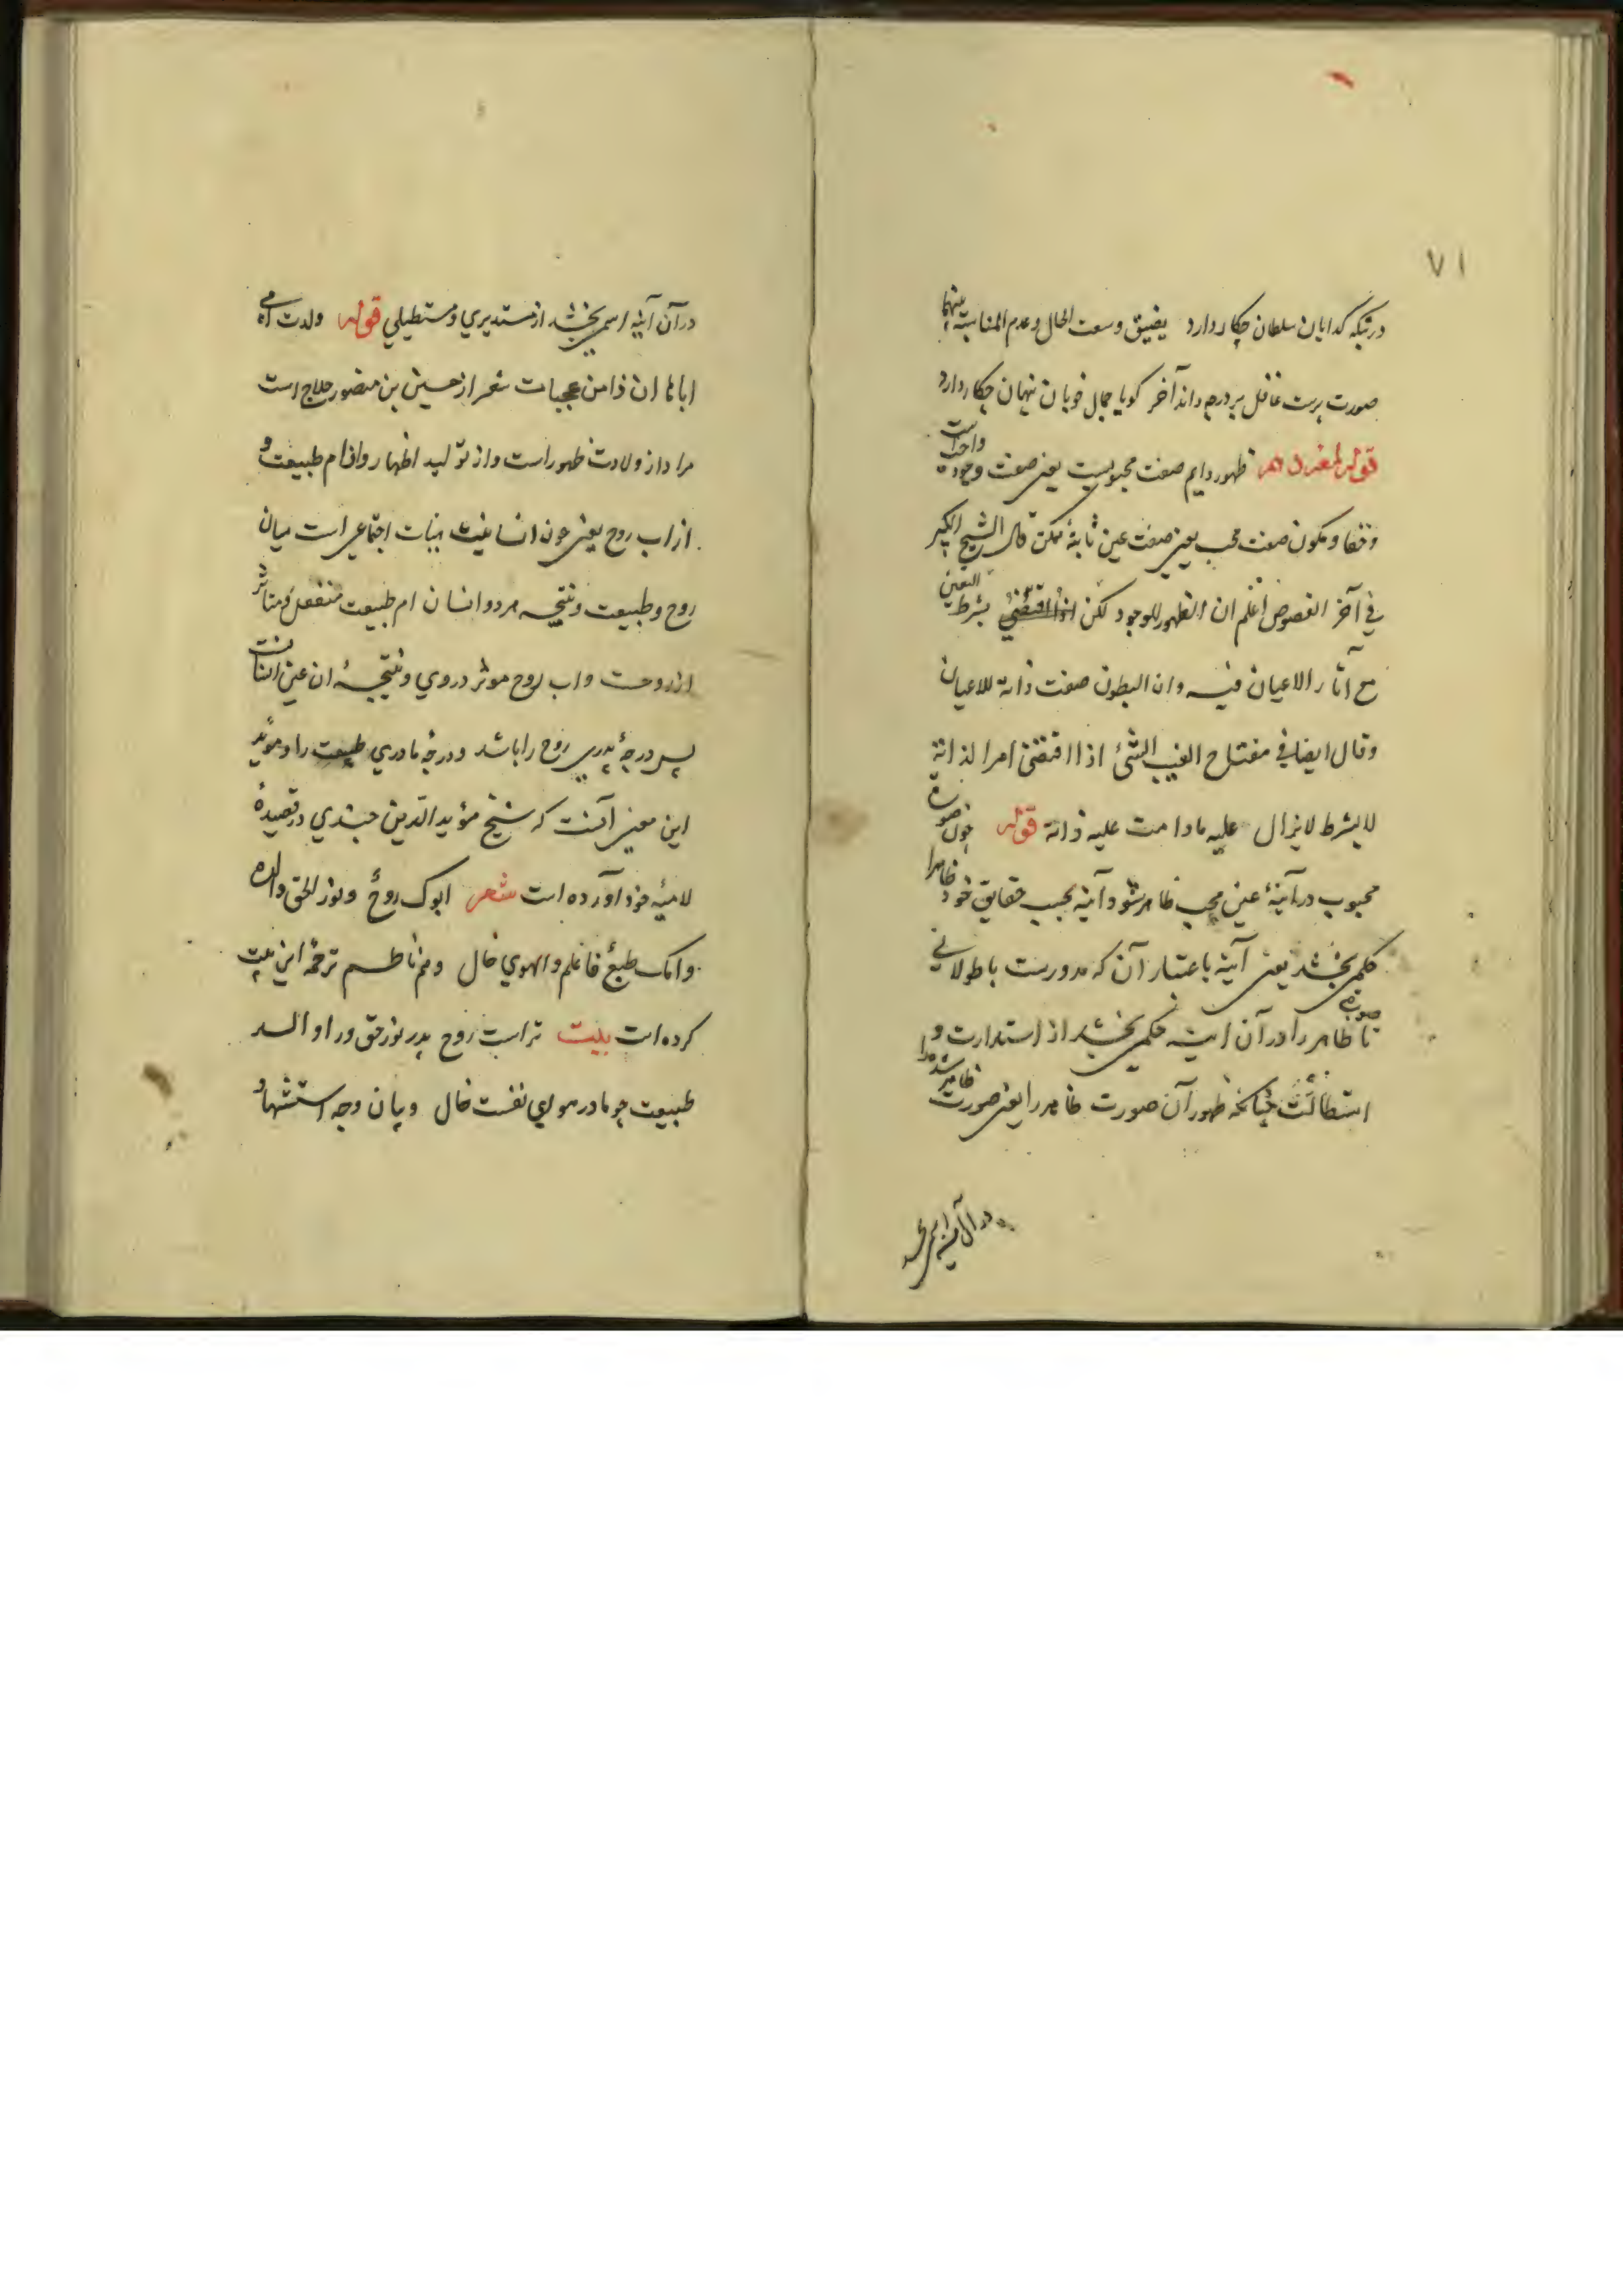 ٧١
در تبکه کدایان سلطان چکار دارد یضیق وسعت الحال وعدم المناسبة بینهما
صورت پرست غافل پر درجه داند آخر کو با جمال خوبان پنهان چکار دارد
قوله ظهور دایم صفت محبوبیت یعنی صفت وجود واحداست
وخفا ومکون صفت محب یعنی صفت عین ثابتهٔ ممکن قال الشیخ الکبیر
فی آخر الفصوص اعلم ان الظهور للوجود لکن بشرط التعین
مع آثار الاعیان فیه وان البطون صفت ذاته للاعیان
وقال ایضا فی مفتاح الغیب الشئ اذا اقتضی امرا لذاته
لا بشرط لا یزال علیه مادامت علیه ذاته قوله چون صورة
محبوب در آینهٔ عین محب ظاهر شود آینه بحسب حقایق خود ظاهرا
حکمی بخشد یعنی آینه باعتبار آن که مدورست یا طولانی
صورة ظاهر را در آن اینه حکمی بخشد از استدارت و
استطالت چنانکه ظهور آن صورت ظاهر را یعنی صورت ظاهر شده را
در آن آینه اسمی بخشد
در آن آینه اسمی بخشد از مستدیری و مستطیلی قوله ولدت امی
اباها ان ذا من عجبات شعر از حسین بن منصور حلاج است
مراد از ولادت ظهور است واز تولید اظهار واز ام طبیعت و
از اب روح یعنی چون انسانیت هیأت اجتماعی است میان
روح و طبیعت ونتیجه هر دو انسان ام طبیعت منفعل و متأثر
از روحست واب روح موثر در وی ونتیجهٔ ان عین انسانست
پس درجهٔ پدری روح را باشد ودرجهٔ مادری طبیعت را ومؤید
این معنی آنست که شیخ مؤید الدین جندی در قصیدهٔ
لامیهٔ خود آورده است شعر ابوک روح ونور الحق والده
وامک طبع فاعلم والهوی خال ومن ناظم ترجمهٔ این بیت
کرده است بیت تراست روح پدر نور حق ورا والد
طبیعت چو مادر هوای نفست خال وبیان وجه استشهاد